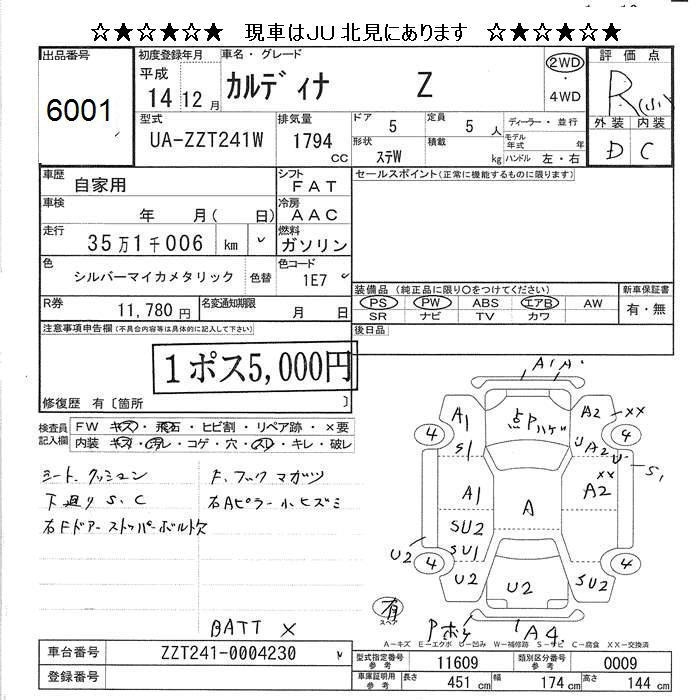 ☆★☆★☆★ 現車はJU 北見にあります ☆★☆★☆★
出品番号
6001
初度登録年月
平成
14 12 月
車名・グレード
カルディナ Z
2WD
・
4WD
評価点
R(小)
外装 内装
D C
型式
UA-ZZT241W
排気量
1794
CC
ドア 5
定員 5 人
形状 ステW
積載 kg
ディーラー・並行
モデル年式 年
ハンドル 左・右
車歴
自家用
シフト
FAT
車検
年 月( 日)
冷房
AAC
走行
35万1千006 km
燃料
ガソリン
色
シルバーマイカメタリック 色替
色コード
1E7
R券
11,780 円
名変通知期限
月 日
セールスポイント(正常に機能するものに限ります)
装備品(純正品に限り○をつけてください)
PS PW ABS エアB AW
SR ナビ TV カワ
新車保証書
有・無
後日品
注意事項申告欄(不具合内容等は具体的に記入して下さい)
1ポス5,000円
修復歴 有〔箇所 〕
検査員記入欄
FW キズ・飛石・ヒビ割・リペア跡・×要
内装 キズ・汚レ・コゲ・穴・スレ・キレ・破レ
シート、クッション
下廻りS、C
右Fドアーストッパーボルト欠
F.フックマガツ
右Aピラー小ヒズミ
BATT ×
A1 A1
A1 点Pハゲ A2 ××
4 4
S1 A2 U
S1
A1 A2 ××
A
SU2
SU1
U2
4 4
U2 U2 SU2
有
スペア
Pボケ A4
A-キズ E-エクボ U-凹み W-補修跡 S-サビ C-腐食 XX-交換済
車台番号
ZZT241-0004230
登録番号
型式指定番号
参考
11609
類別区分番号
参考
0009
車庫証明用
参考
長さ 451 cm
幅 174 cm
高さ 144 cm